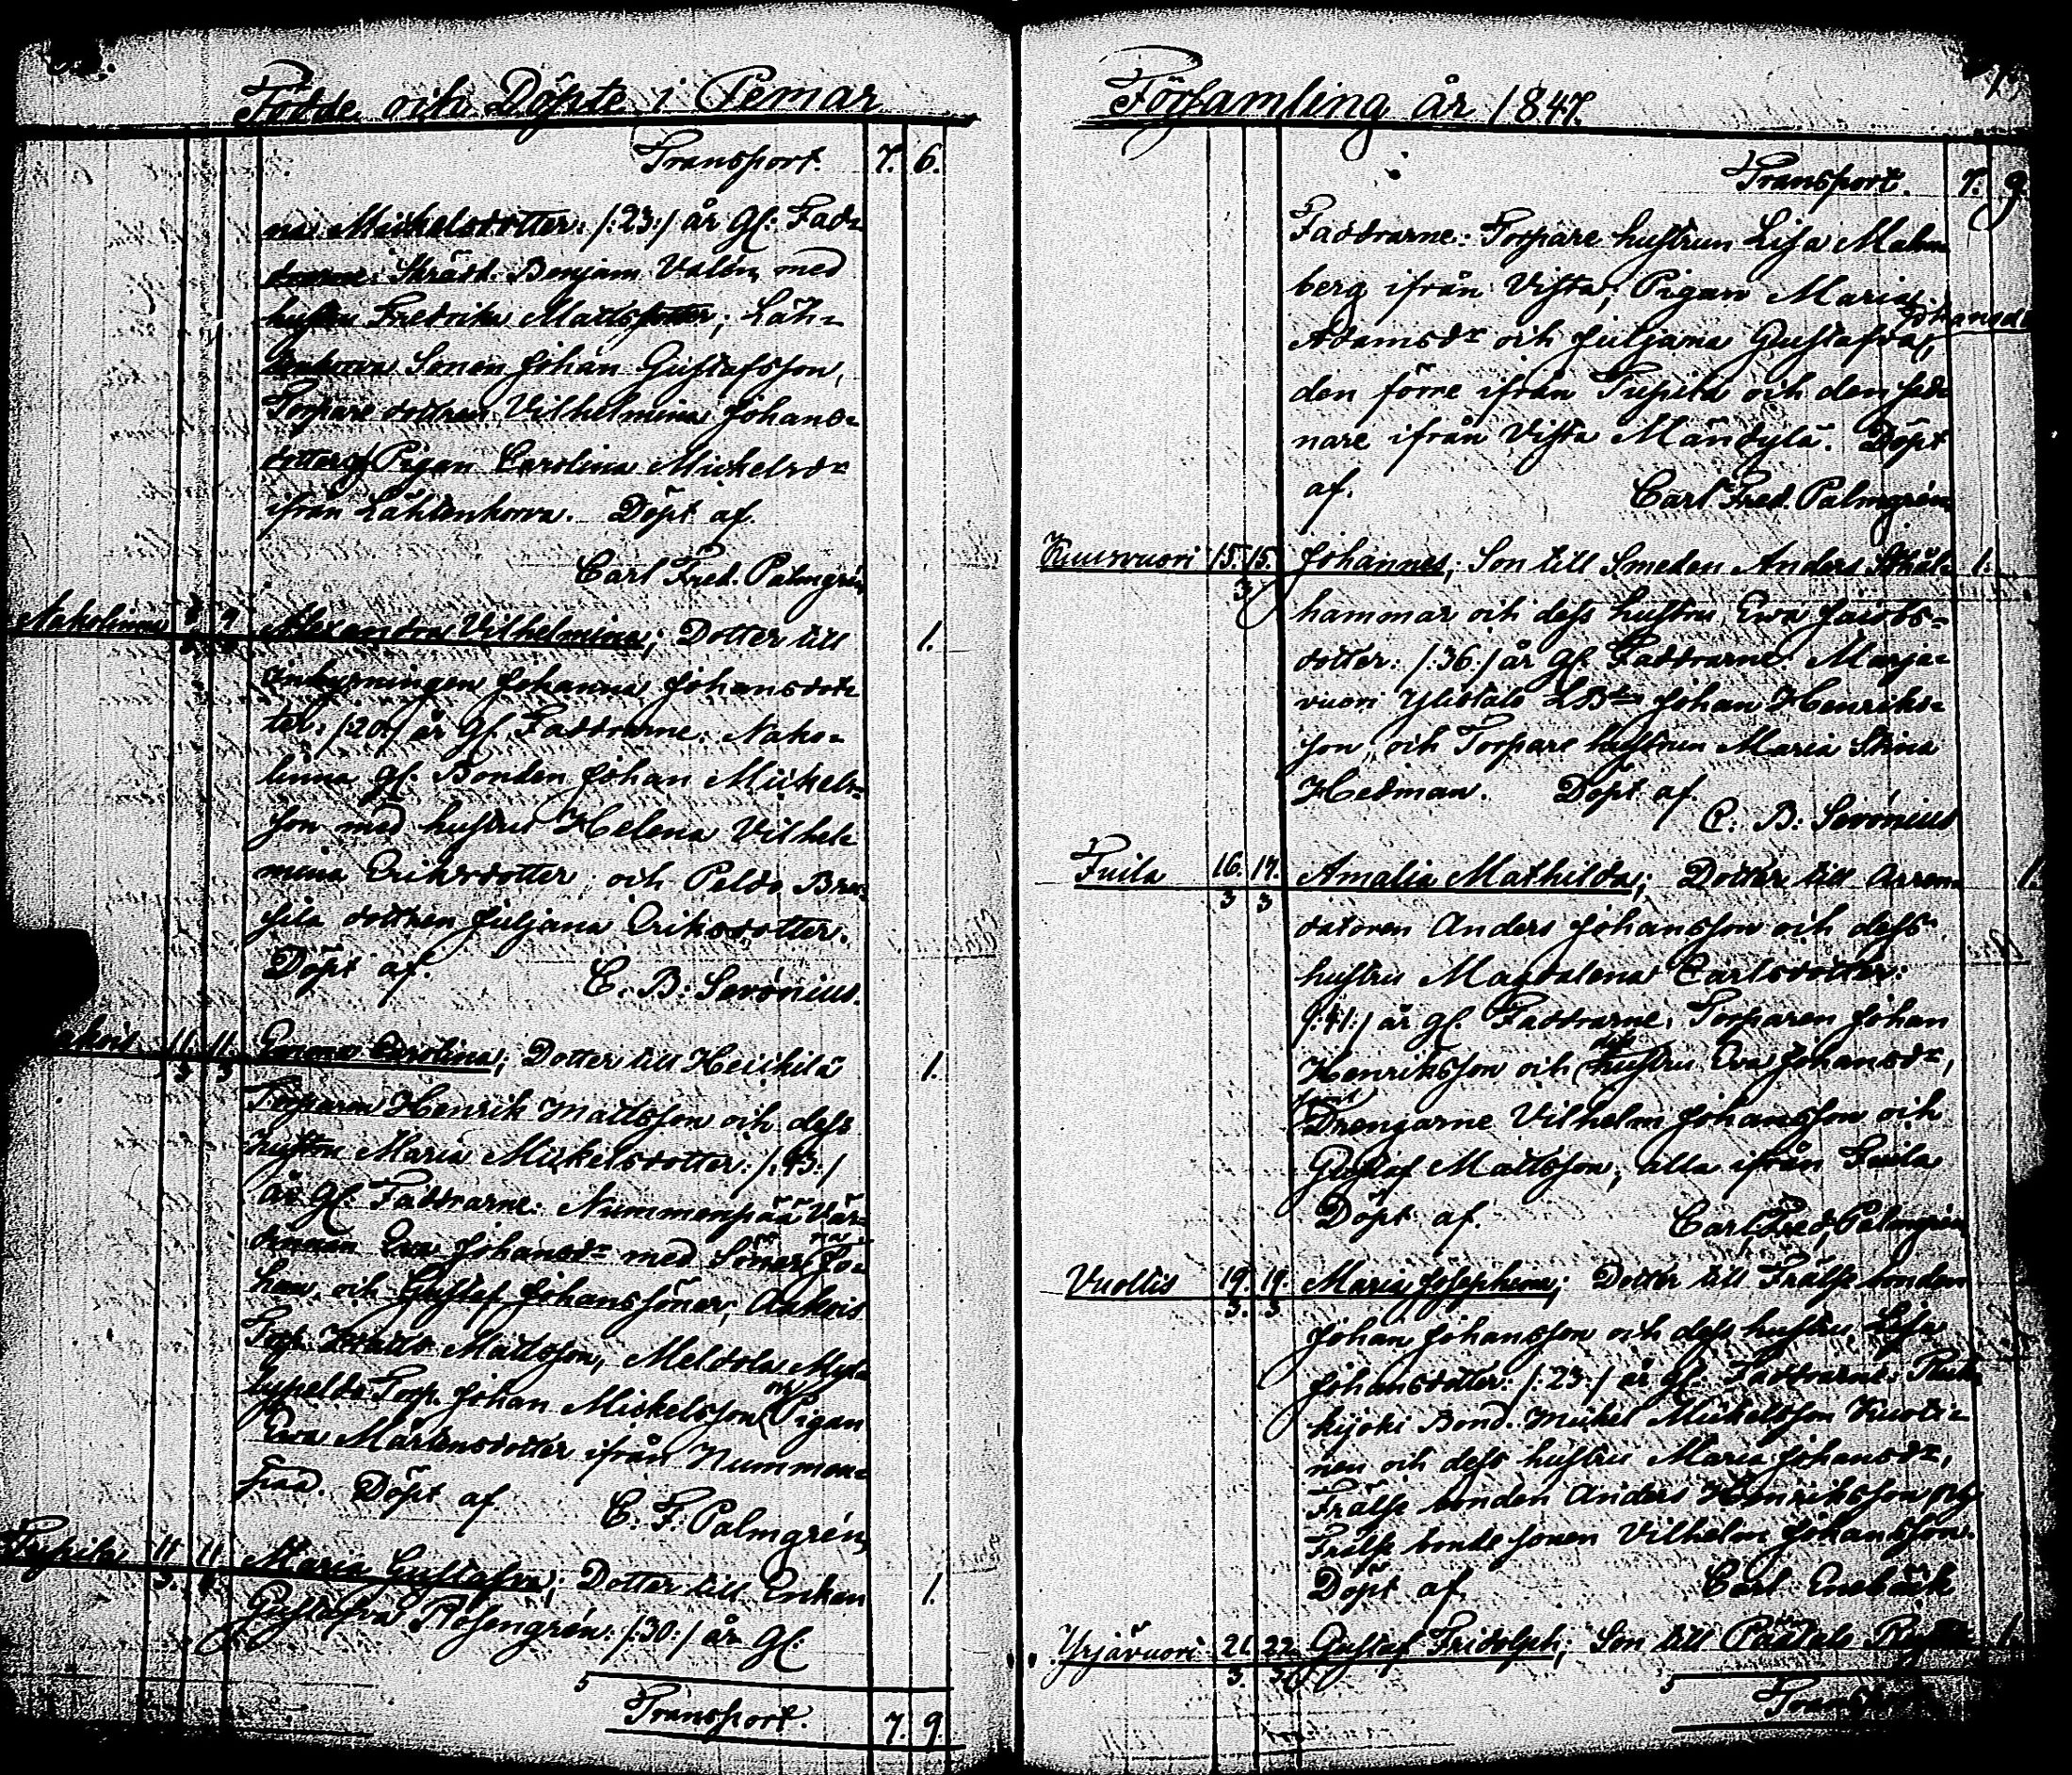 Födde och Döpte i Pemar
Transport. 7. 6.
na Mickelsdotter: /:23:/ år gl: Fad-
drarne: Skrädd. Benjam. Valén med
hustru Fredrika Mattsdotter; Läh-
Sonen Johan Gustafsson,
Torpare dottren Vilhelmina Johans-
dotter och Pigan Carolina Mickelsdr
ifrån Lähtenkorva. Döpt af.
Carl Fred. Palmgrén
Nakolinna 9 Alexandra Vilhelmina; Dotter till 1.
Inhysningen Johanna Johansdot-
ter: /:20:/ år gl. Faddrarne: Nako-
linna gl. Bonden Johan Mickels-
son med hustru Helena Vilhel-
mina Eriksdotter och Peldo
dottren Juljana Eriksdotter.
Döpt af. C. B: Serónius.
11. 11. Emma Carolina; Dotter till Heickilä 1.
3 3
Torparen Henrik Mattsson och dess
hustru Maria Mickelsdotter: /:43:/
år gl: Faddrarne: Nummenpää Vär-
dinnan Eva Johansdr med Söner na Jo-
han, och Gustaf Johanssöner, Aakois
Torp. Mattsson, Meldola
Torp. Johan Mickelsson och Pigan
Eva Mårtensdotter ifrån Nummen-
pää. Döpt af C. F. Palmgrén
11 11 Maria Gustafva; Dotter till Enkan 1.
3.
Gustafva Rosengrén: /:30:/ år gl:
5
Transport. 7. 9.
Församling år 1847.
Transport. 7. 9
Faddrarne: Torpare hustrun Lisa Malm-
berg ifrån Vista, Pigan Maria
Adamsdr och Juljana Gustafva Johansdr,
den förre ifrån och den sed-
nare ifrån Vista Mändylä. Döpt
af. Carl Fred. Palmgrén
Kuusvuori 15. 15. Johannes; Son till Smeden Anders Stål- 1.
3
hammar och dess hustru Eva Jacobs-
dotter: /:36:/ år gl. Faddrarne: Marja-
vuori Ylistalo Johan Henriks-
son, och Torpare hustrun Maria Stina
Hedman. Döpt af.
C: B: Serónius
Fuila 16. 17. Amalia Mathilda; Dotter till Arren- 1.
3 3
datoren Anders Johansson och dess
hustru Magdalena Carlsdotter:
/:41:/ år gl. Faddrarne: Torparen Johan
Henriksson och dess hustru Eva Johansdr,
Drengarne Vilhelm Johansson och
Gustaf Mattsson, alla ifrån Fuila
Döpt af. Carl Fred. Palmgrén
Vuoltis 19. 19. Maria Josephina; Dotter till Frälse bonden
3. 3
Johan Johansson och dess hustru, Lisa
Johansdotter: /:23:/ år gl. Faddrarne:
Bond. Mickel Mickelsson
nen och dess hustru Maria Johansdr,
Frälse bonden Anders Henriksson och
Frälse bonde sonen Vilhelm Johansson.
Döpt af. Carl Enebäck
Yrjävuori 21. 22. Gustaf Fridolph; Son till 1.
3. 3
5
Transport